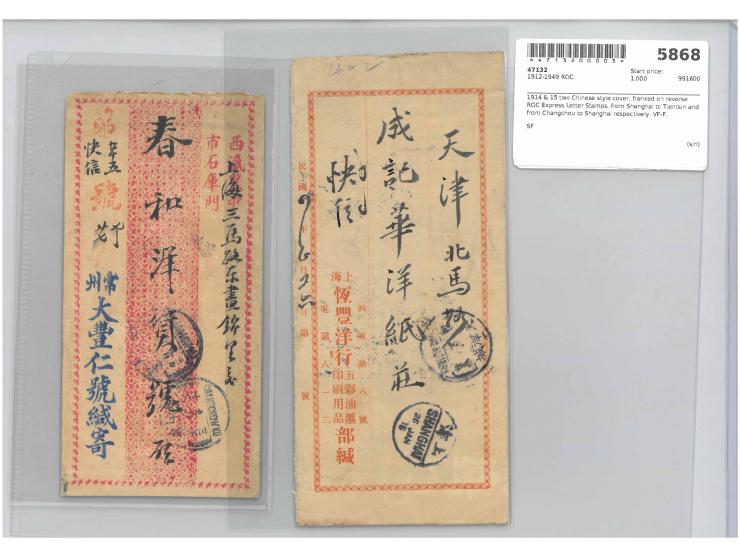 5868
*47132000003*
47132
1912-1949 ROC
Start price:
1.000
991600
1914 & 15 two Chinese style cover, franked on reverse
ROC Express Letter Stamps, from Shanghai to Tientsin and
from Changchou to Shanghai respectively, VF-F.
SF
(s/n)
天津北馬路
成記華洋紙莊
快信
民國
年
月
日第
號
上海
恆豐洋行
五彩油墨
印刷用品
部緘
電話八一二
SHANGHAI
西
市石庫門
上海三馬路東畫錦里交
春和洋貨號
第
號
快信
常州
大豐仁號緘寄